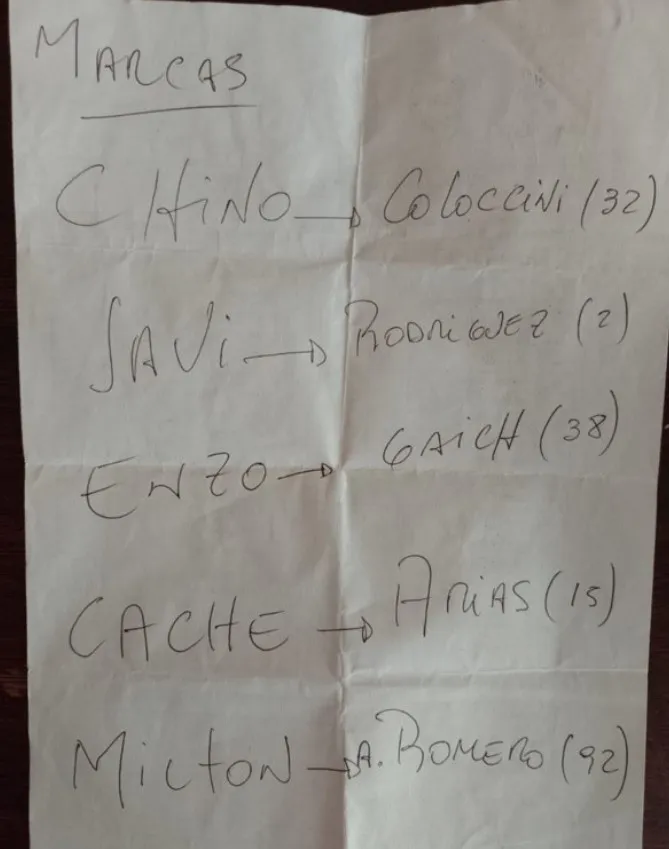 MARCAS
CHiNO → COLOCCiNi (32)
SAVi → RODRiGUEZ (2)
ENZO → GAiCH (38)
CACHE → ARiAS (15)
MiLTON → A. ROMERO (92)